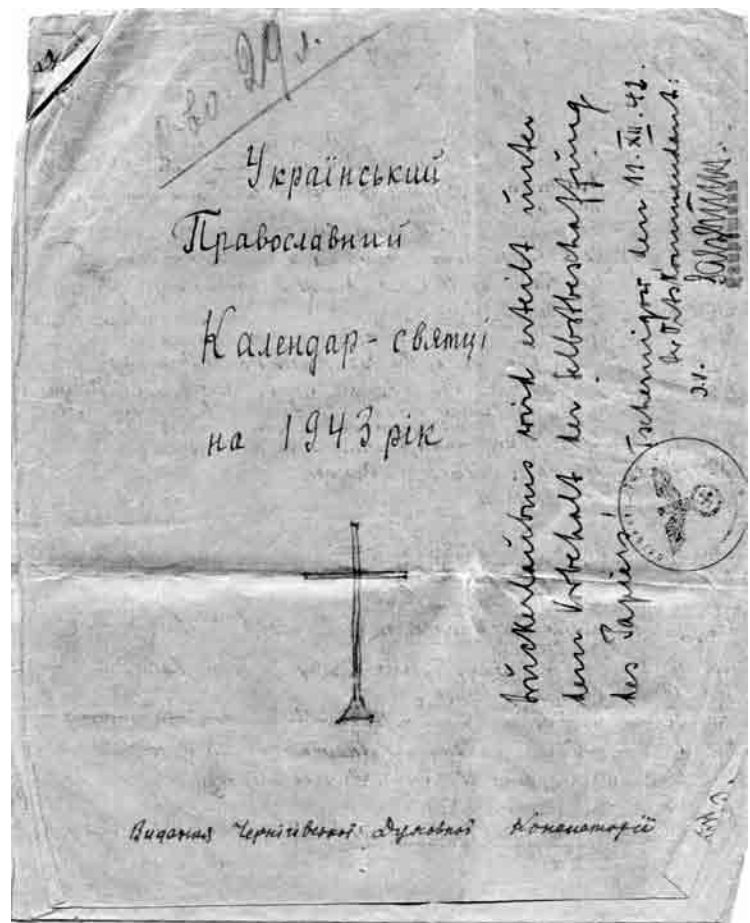 29
Український
Православний
Календар-святці
на 1943 рік
Видання Чернігівської Духовної Консисторії
Druckerlaubnis wird erteilt unter
dem Vorbehalt der Selbstbeschaffung
des Papiers!
Tschernigow den 11. XII. 42.
Der Ortskommandant:
J.V.